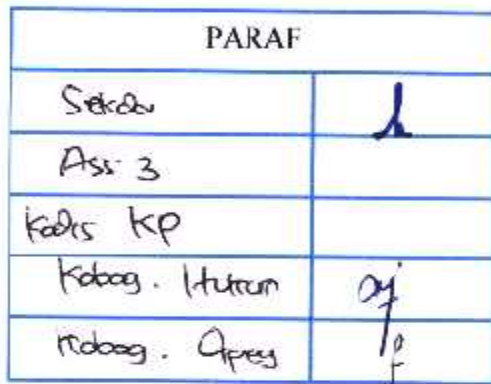 PARAF
Sekda
Ass. 3
Kadis KP
Kabag. Hukum
Kabag.